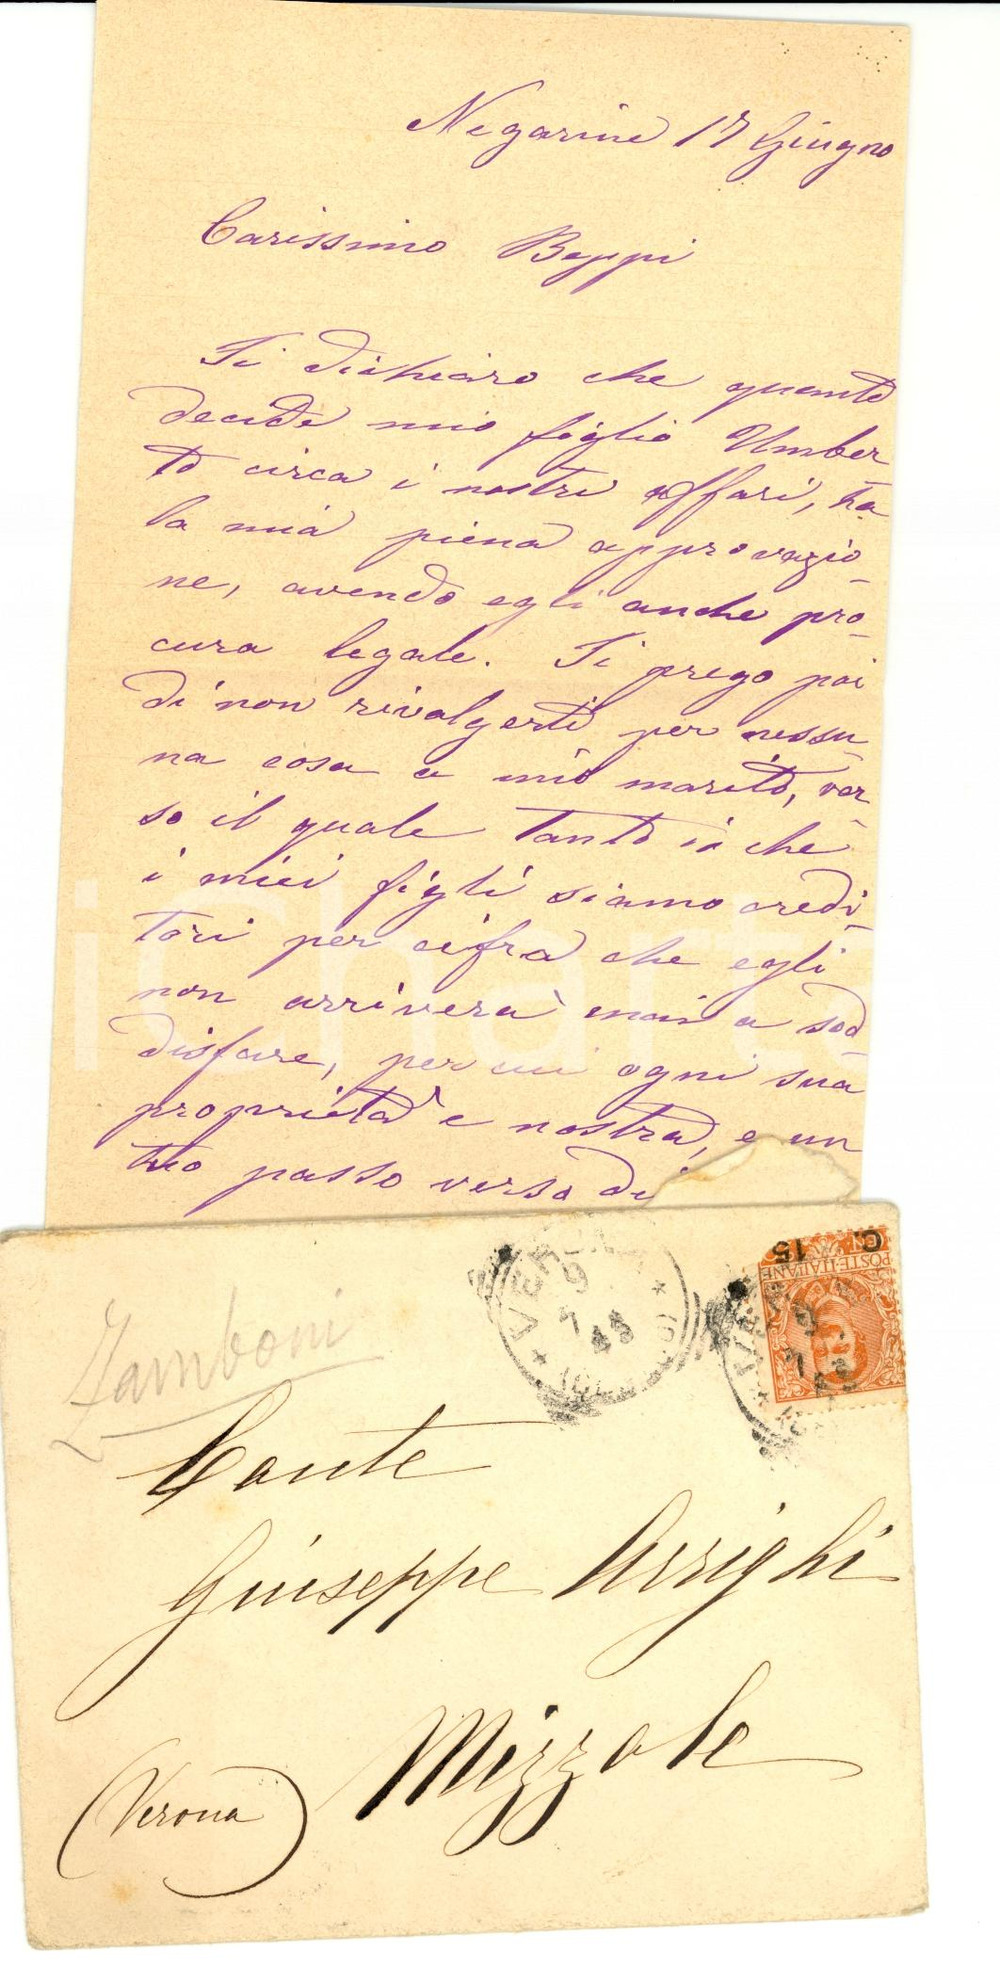 Negarine 17 Giugno
Carissimo Beppi
Ti dichiaro che quanto
decide mio figlio Umber
to circa i nostri affari, ha
la mia piena approvazio-
ne, avendo egli anche pro-
cura legale. Ti prego poi
di non rivolgerti per nessu-
na cosa a mio marito, ver-
so il quale tanto io che
i miei figli siamo credi-
tori per cifra che egli
non arriverà mai a sod-
disfare, per cui ogni sua
proprietà è nostra, e un
tuo passo verso di
iCharta
VERONA
C. 15
POSTE ITALIANE
VERONA
Zamboni
Conte
Giuseppe Arrighi
Mizzole
(Verona)